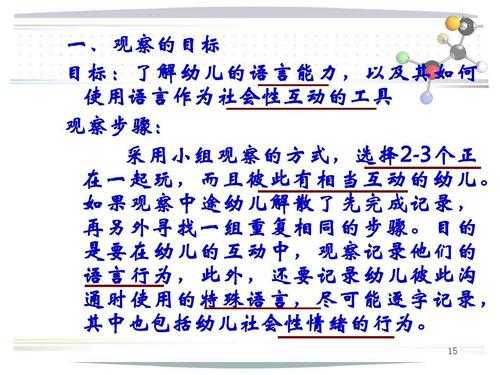 一、观察的目标
目标：了解幼儿的语言能力，以及其如何
使用语言作为社会性互动的工具
观察步骤：
采用小组观察的方式，选择2-3个正
在一起玩，而且彼此有相当互动的幼儿。
如果观察中途幼儿解散了先完成记录，
再另外寻找一组重复相同的步骤。目的
是要在幼儿的互动中，观察记录他们的
语言行为，此外，还要记录幼儿彼此沟
通时使用的特殊语言，尽可能逐字记录，
其中也包括幼儿社会性情绪的行为。
15